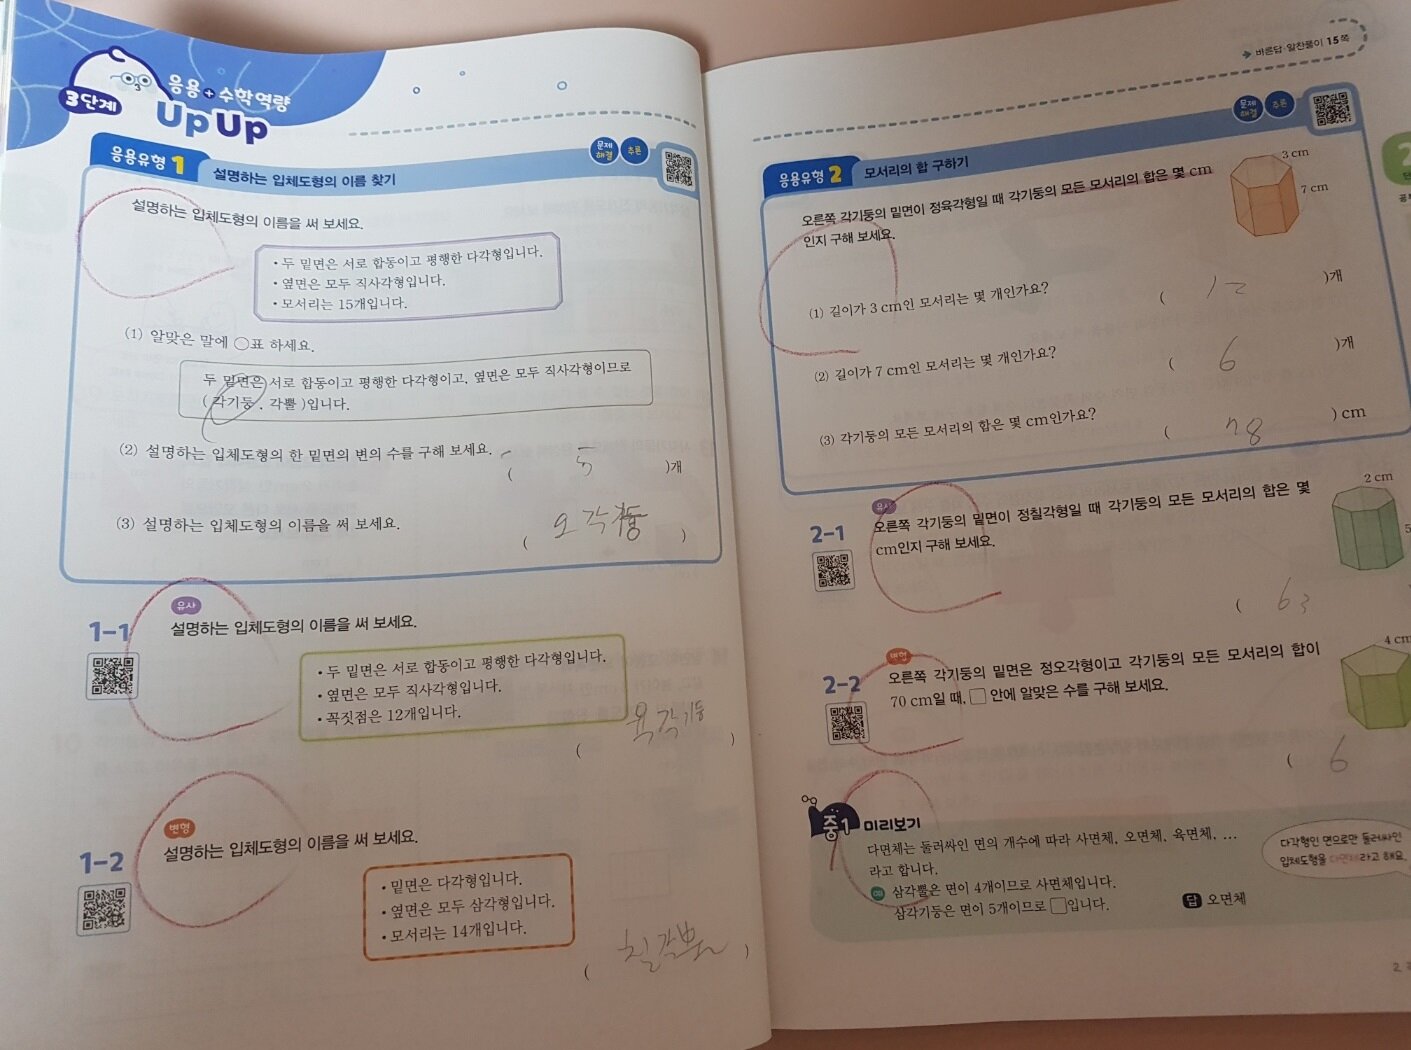 3단계
응용+수학역량
UpUp
응용유형 1 설명하는 입체도형의 이름 찾기
문제 해결 추론
설명하는 입체도형의 이름을 써 보세요.
• 두 밑면은 서로 합동이고 평행한 다각형입니다.
• 옆면은 모두 직사각형입니다.
• 모서리는 15개입니다.
(1) 알맞은 말에 ○표 하세요.
두 밑면은 서로 합동이고 평행한 다각형이고, 옆면은 모두 직사각형이므로
( 각기둥 , 각뿔 )입니다.
(2) 설명하는 입체도형의 한 밑면의 변의 수를 구해 보세요.
( 5 )개
(3) 설명하는 입체도형의 이름을 써 보세요.
( 오각기둥 )
유사
1-1 설명하는 입체도형의 이름을 써 보세요.
• 두 밑면은 서로 합동이고 평행한 다각형입니다.
• 옆면은 모두 직사각형입니다.
• 꼭짓점은 12개입니다.
( 육각기둥 )
변형
1-2 설명하는 입체도형의 이름을 써 보세요.
• 밑면은 다각형입니다.
• 옆면은 모두 삼각형입니다.
• 모서리는 14개입니다.
( 칠각뿔 )
바른답·알찬풀이 15쪽
문제 해결 추론
응용유형 2 모서리의 합 구하기
오른쪽 각기둥의 밑면이 정육각형일 때 각기둥의 모든 모서리의 합은 몇 cm
인지 구해 보세요.
3 cm
7 cm
(1) 길이가 3 cm인 모서리는 몇 개인가요?
( 12 )개
(2) 길이가 7 cm인 모서리는 몇 개인가요?
( 6 )개
(3) 각기둥의 모든 모서리의 합은 몇 cm인가요?
( 78 ) cm
유사
2-1 오른쪽 각기둥의 밑면이 정칠각형일 때 각기둥의 모든 모서리의 합은 몇
cm인지 구해 보세요.
2 cm
5
( 63
변형
2-2 오른쪽 각기둥의 밑면은 정오각형이고 각기둥의 모든 모서리의 합이
70 cm일 때, □ 안에 알맞은 수를 구해 보세요.
4 cm
( 6
중1 미리보기
다면체는 둘러싸인 면의 개수에 따라 사면체, 오면체, 육면체, …
라고 합니다.
예 삼각뿔은 면이 4개이므로 사면체입니다.
삼각기둥은 면이 5개이므로 □입니다.
답 오면체
다각형인 면으로만 둘러싸인
입체도형을 다면체라고 해요.
2.